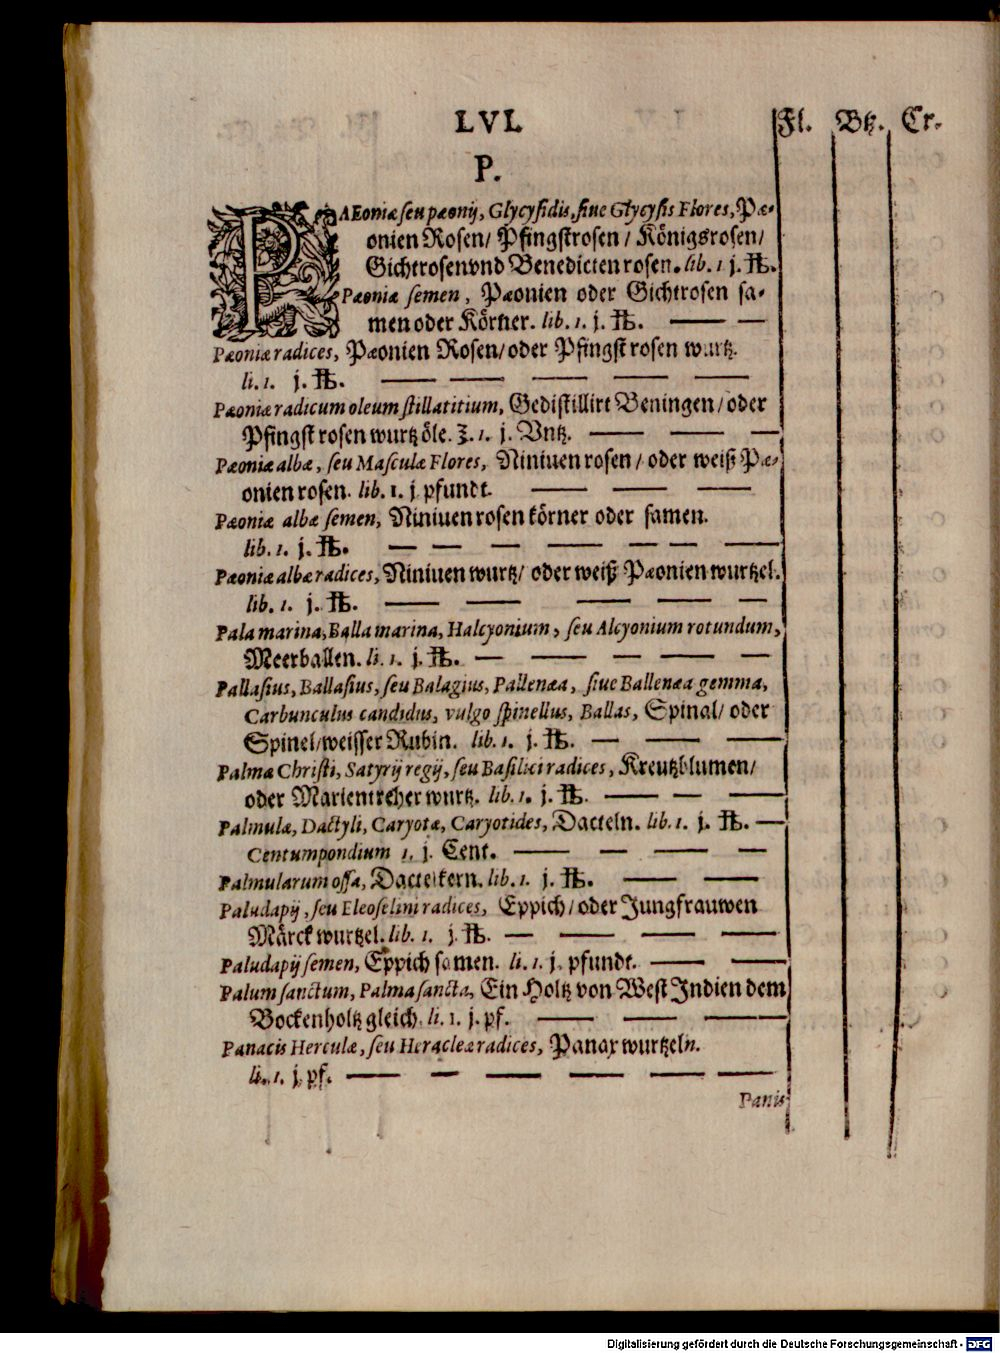 LVI.
Fl. Btz. Cr.
P.
PAEoniæ seu pæonij, Glycysidis, siue Glycysis Flores, Pæ-
onien Rosen/ Pfingstrosen / Königsrosen/
Gichtrosen vnd Benedicten rosen. lib. 1 j. ℔.
Pæoniæ semen, Pæonien oder Gichtrosen sa-
men oder Körner. lib. 1. j. ℔. — —
Pæoniæ radices, Pæonien Rosen/ oder Pfingst rosen wurtz.
li. 1. j. ℔. — — — — —
Pæoniæ radicum oleum stillatitium, Gedistillirt Beningen / oder
Pfingst rosen wurtz öle. ℥. 1. j. Vntz. — — —
Pæoniæ albæ, seu Masculæ Flores, Niniuen rosen / oder weiß Pæ-
onien rosen. lib. 1. j. pfundt. — — —
Pæoniæ albæ semen, Niniuen rosen körner oder samen.
lib. 1. j. ℔. — — — — — — —
Pæoniæ albæ radices, Niniuen wurtz/ oder weiß Pæonien wurtzel.
lib. 1. j. ℔. — — — — —
Pala marina, Balla marina, Halcyonium, seu Alcyonium rotundum,
Meerballen. li. 1. j. ℔. — — — — —
Pallasius, Ballasius, seu Balagius, Pallenæa, siue Ballenæa gemma,
Carbunculus candidus, vulgo spinellus, Ballas, Spinal/ oder
Spinel/ weisser Rubin. lib. 1. j. ℔. — — —
Palmæ Christi, Satyrij regij, seu Basilici radices, Kreutzblumen/
oder Marientreher wurtz. lib. 1. j. ℔. — — —
Palmulæ, Dactyli, Caryotæ, Caryotides, Dacteln. lib. 1. j. ℔. —
Centumpondium 1. j. Cent. — — — —
Palmularum ossa, Dactelkern. lib. 1. j. ℔. — —
Paludapij, seu Eleoselini radices, Eppich / oder Jungfrauwen
Märck wurtzel. lib. 1. j. ℔. — — — —
Paludapij semen, Eppich samen. li. 1. j. pfundt. — —
Palum sanctum, Palma sancta, Ein Holtz von West Jndien dem
Bockenholtz gleich. li. 1. j. pf. — — —
Panacis Herculæ, seu Heracleæ radices, Panax wurtzeln.
li. 1. j. pf. — — — — — —
Panis
Digitalisierung gefördert durch die Deutsche Forschungsgemeinschaft - DFG